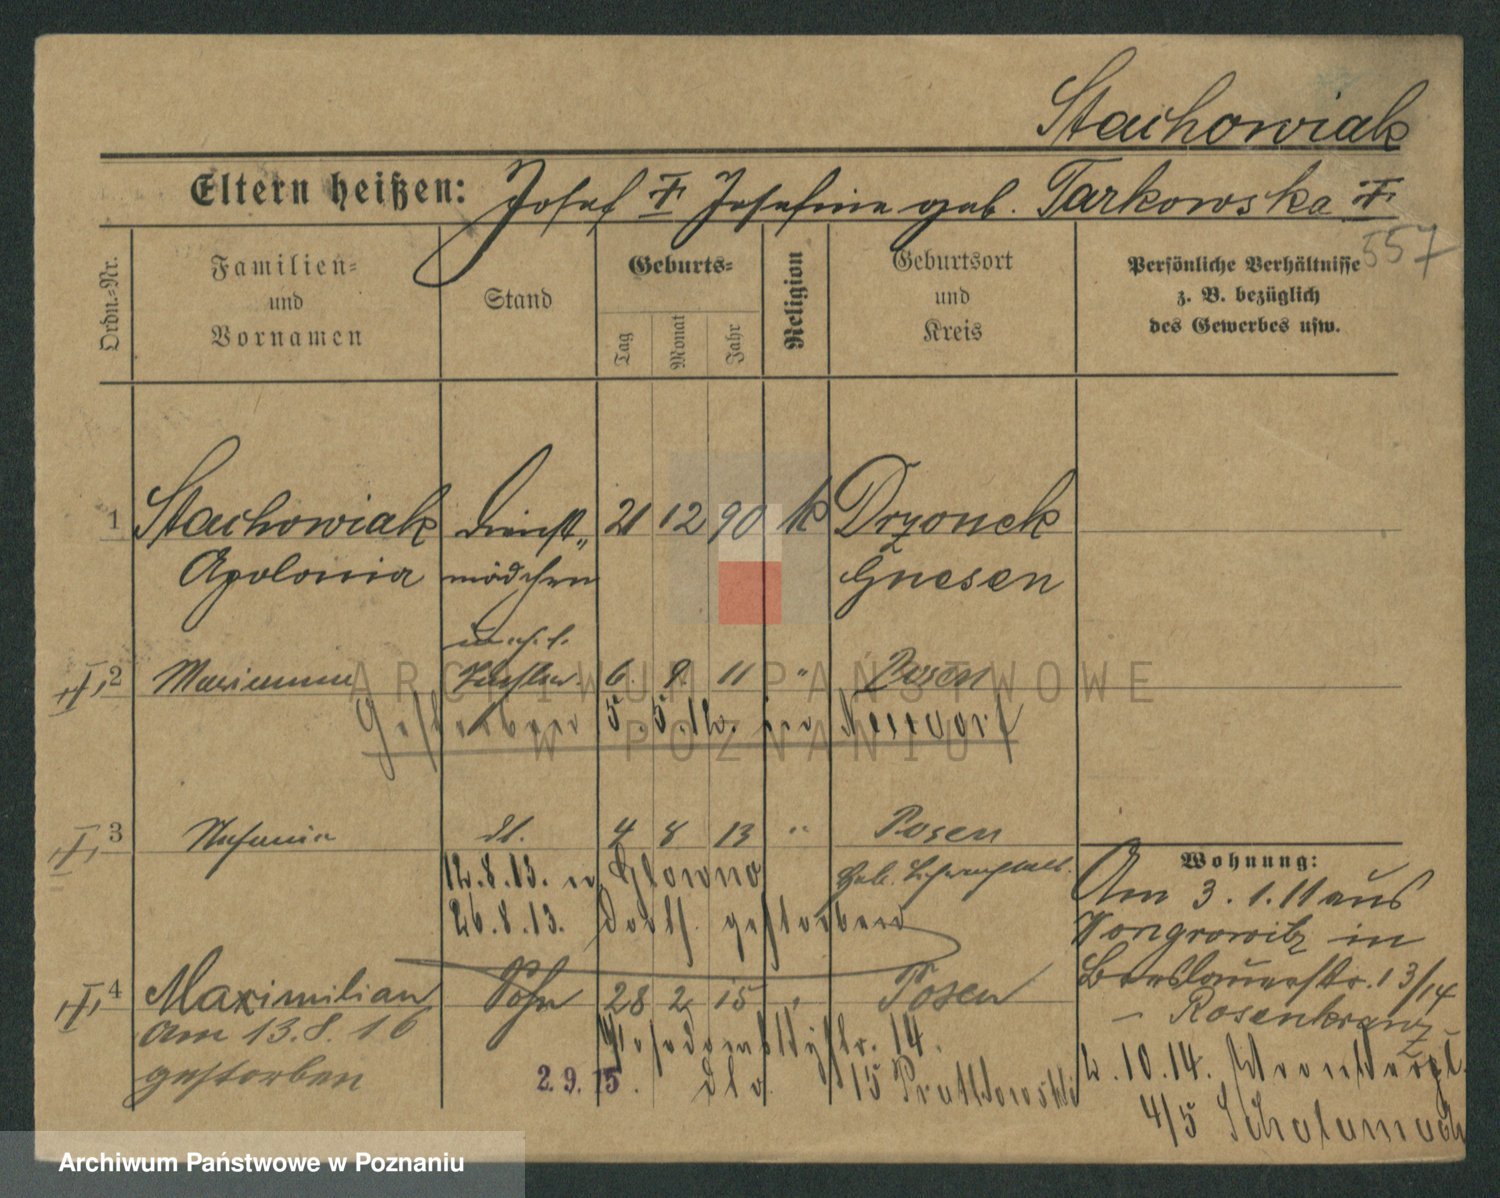 Stachowiak
Eltern heißen: Josef † Josefine geb. Tarkowska †
557
Ordn.=Nr.
Familien=
und
Vornamen
Stand
Geburts=
Tag
Monat
Jahr
Religion
Geburtsort
und
Kreis
Persönliche Verhältnisse
z. B. bezüglich
des Gewerbes usw.
1 Stachowiak Dienst„ 21 12 90 k Dryonek
Apolonia mädchen Gnesen
unehl.
2 Marianna Tochter 6. 9. 11 " Posen
Gestorben 5. 5. 12. in Neudorf
3 Stefania dt. 4 8 13 " Posen
12.8.13. in Glowno
26.8.13. Dortf. gestorben
4 Maximilian Sohn 28 2 15 " Posen
Am 13.8.16
gestorben
14.
2.9.15. dto. 15
Wohnung:
Am 3. 1. 11 aus
Wongrowitz in
Breslauerstr. 13/14
– Rosenkranz –
2. 10. 14.
4/5
ARCHIWUM PAŃSTWOWE
W POZNANIU
Archiwum Państwowe w Poznaniu